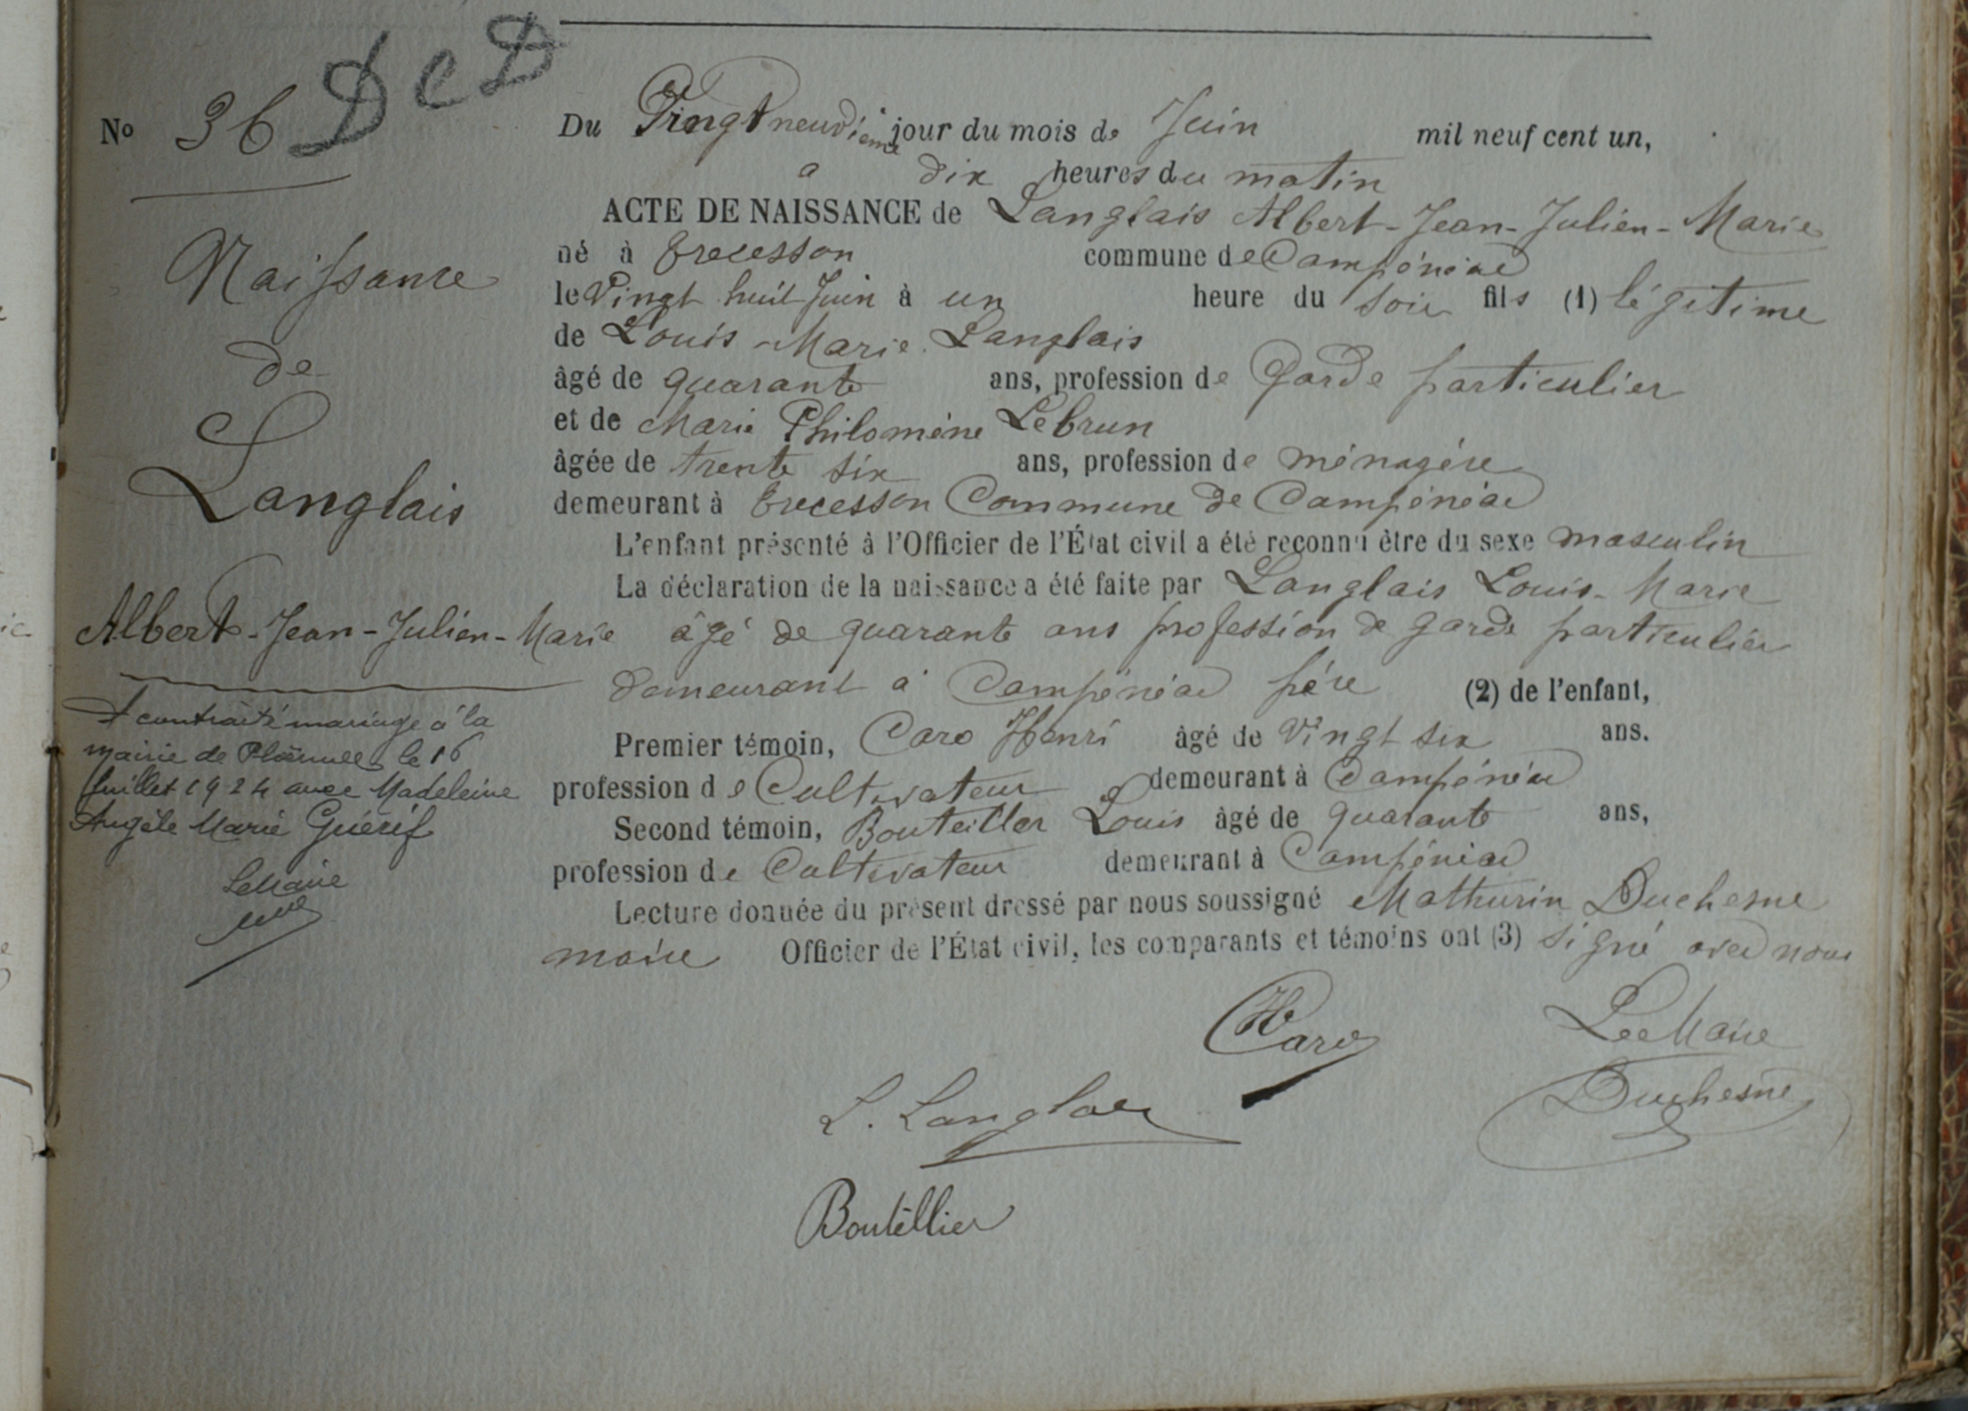 No 36 DCD
Naissance
de
Langlais
Albert-Jean-Julien-Marie
A contracté mariage à la
mairie de Ploërmel le 16
Juillet 1924 avec Madeleine
Angèle Marie Guérif
Le Maire
Du Vingt neuvième jour du mois de Juin mil neuf cent un,
à dix heures du matin
ACTE DE NAISSANCE de Langlais Albert-Jean-Julien-Marie
né à Trecesson commune de Campénéac
le Vingt huit Juin à un heure du soir fils (1) légitime
de Louis-Marie Langlais
âgé de quarante ans, profession de Garde particulier
et de Marie Philomène Lebrun
âgée de trente six ans, profession de ménagère
demeurant à Trecesson Commune de Campénéac
L'enfant présenté à l'Officier de l'État civil a été reconnu être du sexe masculin
La déclaration de la naissance a été faite par Langlais Louis-Marie
âgé de quarante ans profession de garde particulier
demeurant à Campénéac père (2) de l'enfant,
Premier témoin, Caro Henri âgé de Vingt six ans.
profession de Cultivateur demeurant à Campénéac
Second témoin, Bouteiller Louis âgé de quarante ans,
profession de Cultivateur demeurant à Campénéac
Lecture donnée du présent dressé par nous soussigné Mathurin Duchesne
maire Officier de l'État civil, les comparants et témoins ont (3) signé avec nous
H Caro
Le Maire
L. Langlais
Duchesne
Boutéllier